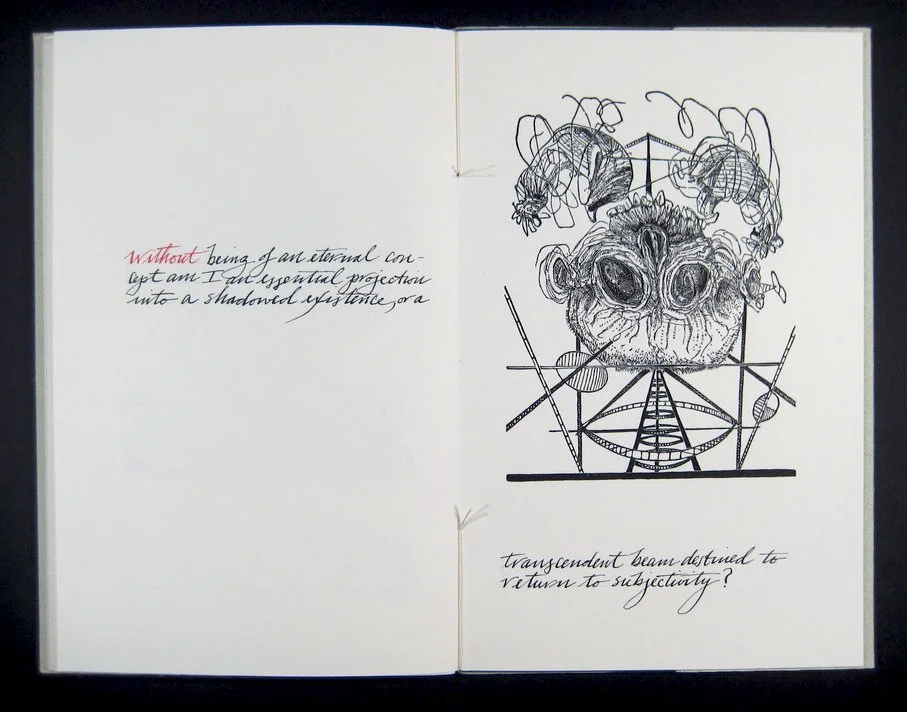 Without being of an eternal con-
cept am I an essential projection
into a shadowed existence, or a
transcendent beam destined to
return to subjectivity?